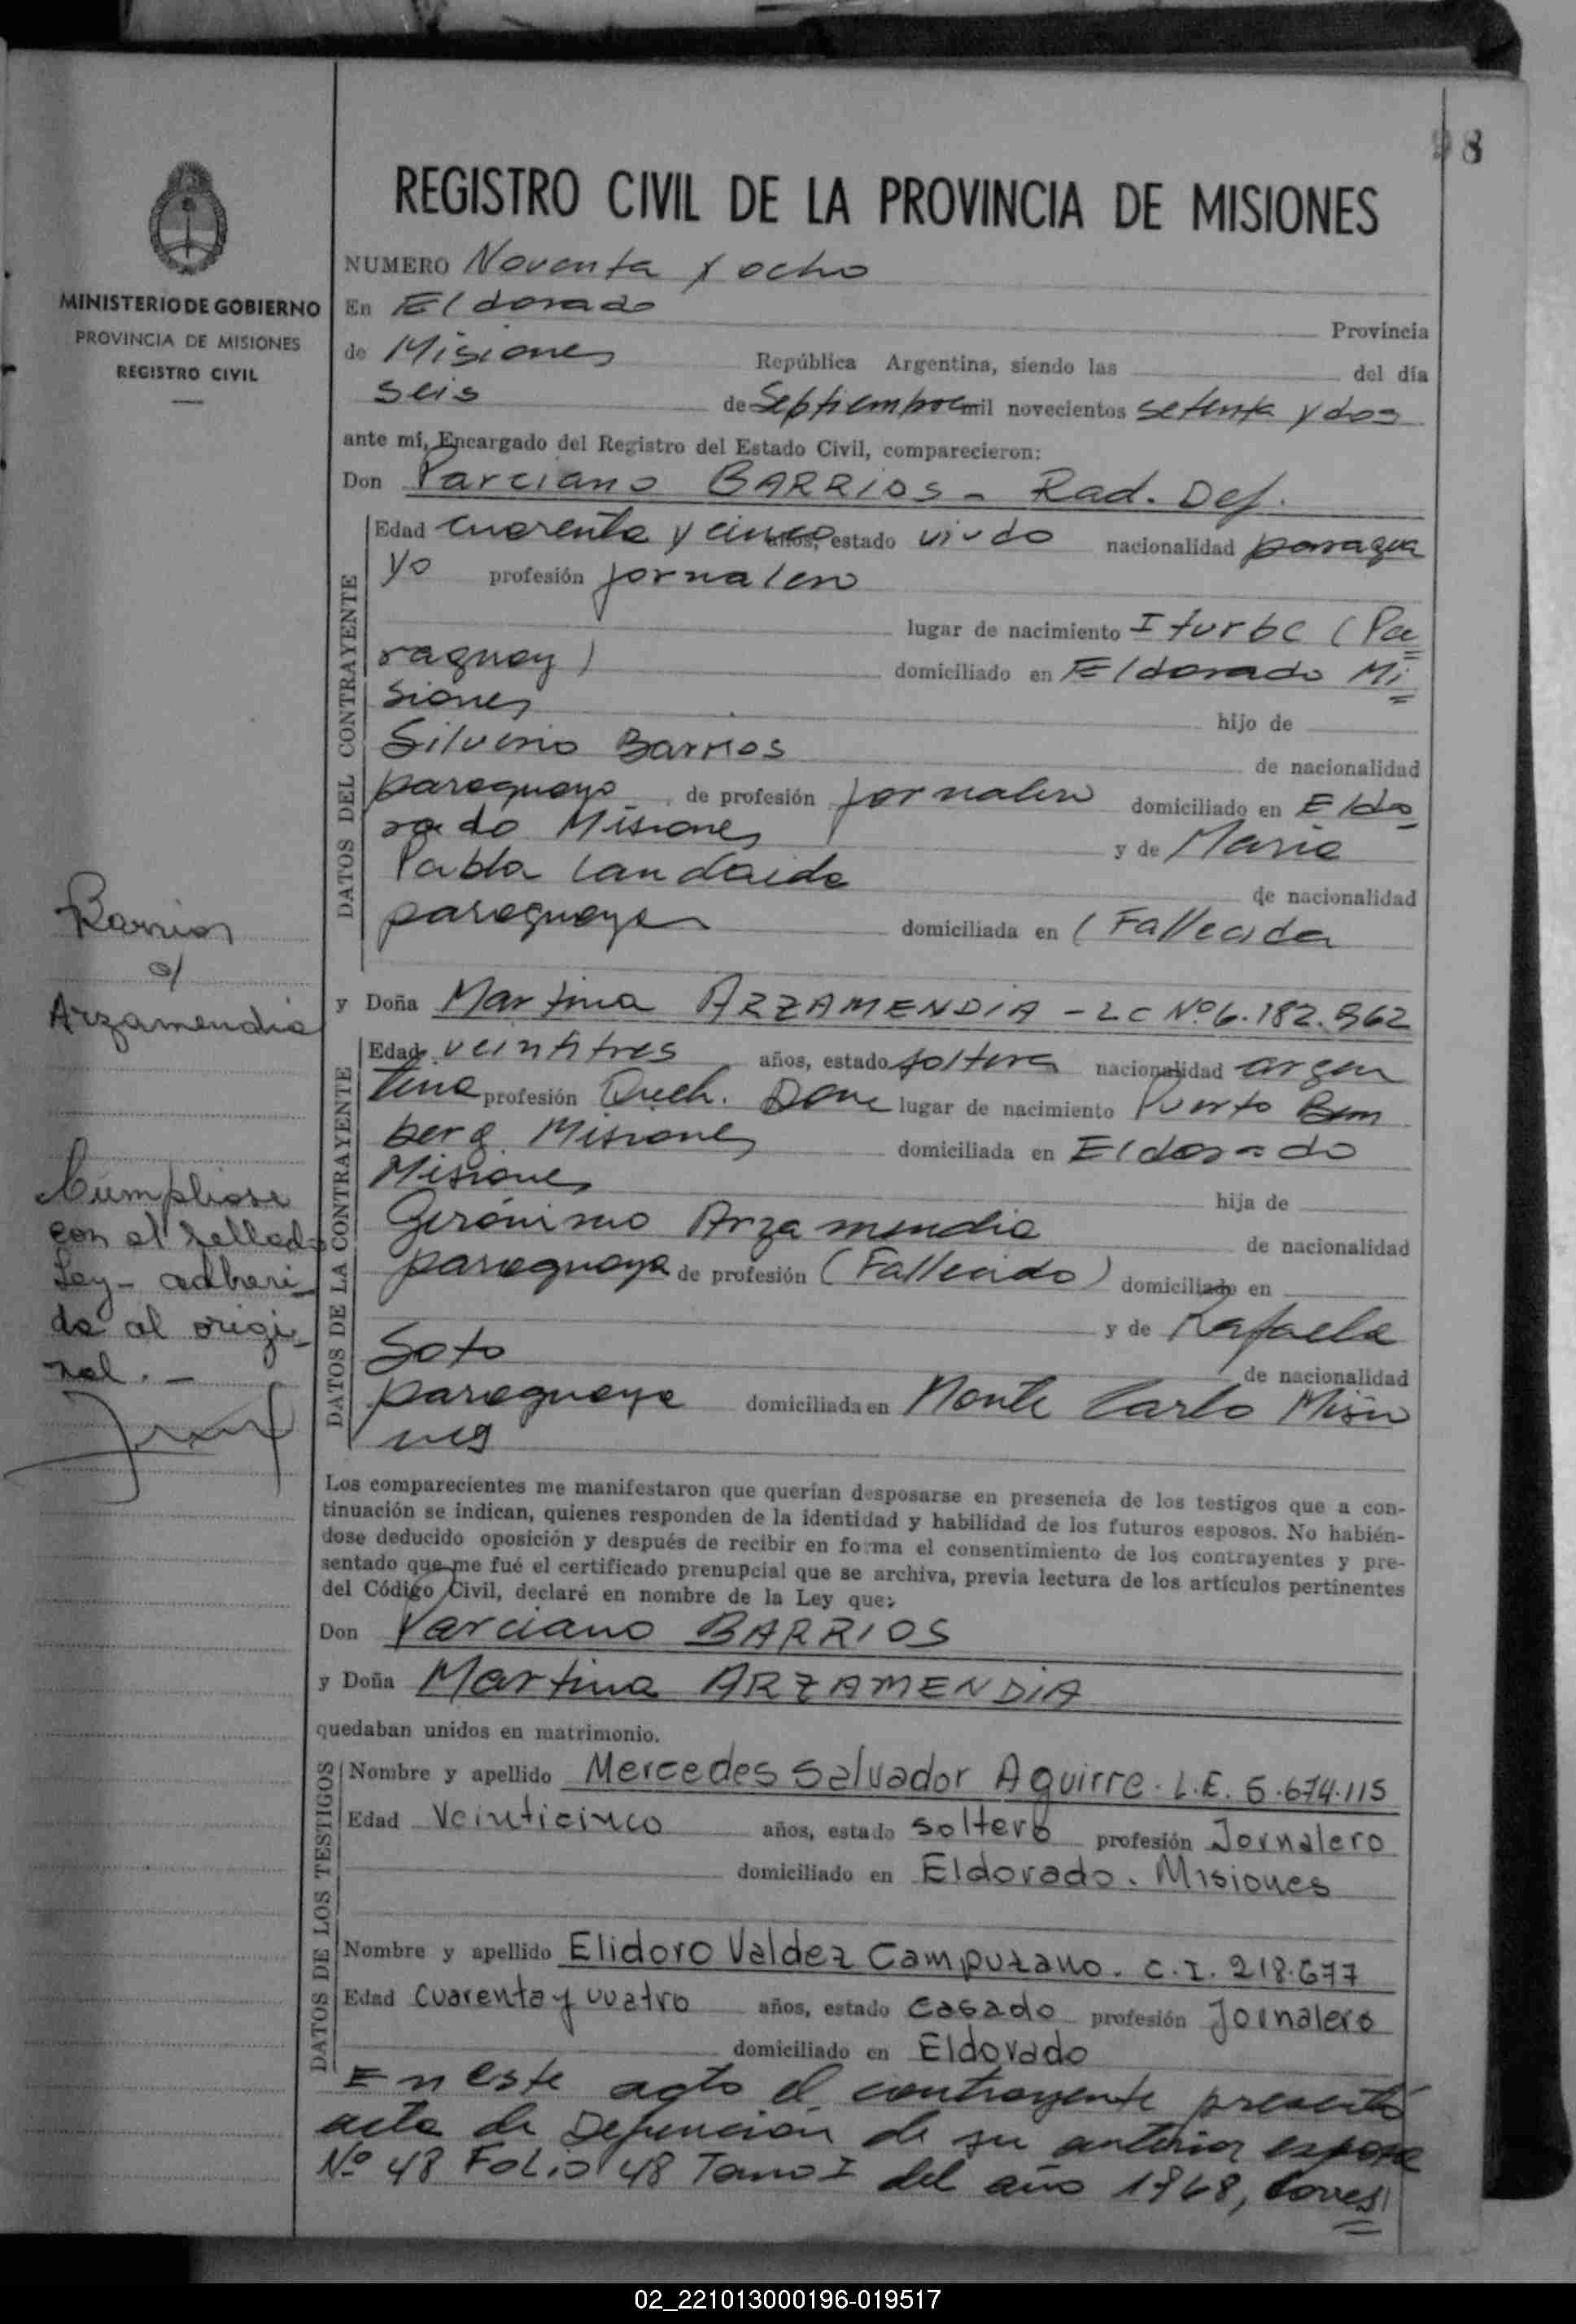 98
REGISTRO CIVIL DE LA PROVINCIA DE MISIONES
MINISTERIO DE GOBIERNO
PROVINCIA DE MISIONES
REGISTRO CIVIL
NUMERO Noventa y ocho
En Eldorado
Provincia
de Misiones República Argentina, siendo las del día
seis de Septiembre mil novecientos setenta y dos
ante mí, Encargado del Registro del Estado Civil, comparecieron:
Don Parciano BARRIOS - Rad. Def.
DATOS DEL CONTRAYENTE
Edad cuarenta y cinco años, estado viudo nacionalidad paragua
yo profesión jornalero
lugar de nacimiento Iturbe (Pa
raguay) domiciliado en Eldorado Mi
siones
hijo de
Silverio Barrios
de nacionalidad
paraguayo de profesión jornalero domiciliado en Eldo
rado Misiones y de Maria
Pabla Landaida
de nacionalidad
paraguaya domiciliada en (Fallecida
Barrios
c/
Arzamendia
y Doña Martina ARZAMENDIA - LC Nº 6.182.962
DATOS DE LA CONTRAYENTE
Edad veintitres años, estado soltera nacionalidad argen
tina profesión Queh. Dome lugar de nacimiento Puerto Bem
berg Misiones domiciliada en Eldorado
Misiones
hija de
Gerónimo Arzamendia
de nacionalidad
paraguaya de profesión (Fallecido) domiciliado en
y de Rafaela
Soto
de nacionalidad
paraguaya domiciliada en Monte Carlo Misio
nes
Cumpliose
con el sellado
Ley - adheri
do al origi
nal. -
Los comparecientes me manifestaron que querían desposarse en presencia de los testigos que a con-
tinuación se indican, quienes responden de la identidad y habilidad de los futuros esposos. No habién-
dose deducido oposición y después de recibir en forma el consentimiento de los contrayentes y pre-
sentado que me fué el certificado prenupcial que se archiva, previa lectura de los artículos pertinentes
del Código Civil, declaré en nombre de la Ley que:
Don Parciano BARRIOS
y Doña Martina ARZAMENDIA
quedaban unidos en matrimonio.
DATOS DE LOS TESTIGOS
Nombre y apellido Mercedes Salvador Aguirre. L.E. 5.674.115
Edad Veinticinco años, estado soltero profesión Jornalero
domiciliado en Eldorado. Misiones
Nombre y apellido Elidoro Valdez Campuzano. C.I. 218.677
Edad Cuarenta y cuatro años, estado Casado profesión Jornalero
domiciliado en Eldorado
En este acto el contrayente presentó
acta de Defunción de su anterior esposa
Nº 48 Folio 48 Tomo I del año 1968,
02_221013000196-019517